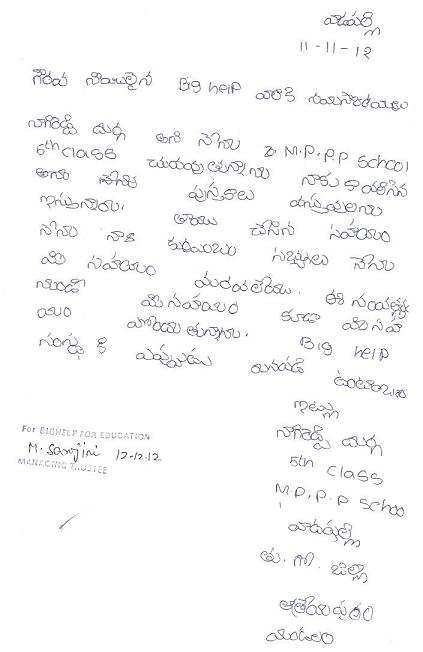 వాడపల్లి
11-11-12
గౌరవ నీయులైన Big help వారికి నమస్కారములు
నాగిరెడ్డి దుర్గ అని నేను M.P.P.P School
5th class చదువుతున్నాను నాకు కావలసిన
పుస్తకాలు వస్తువులను
ఇస్తున్నారు. తాము చేసిన సహాయం
నేను నా కుటుంబం సభ్యులు నేను
మీ సహాయం మరువలేము. ఈ సంవత్సరం
నుండి మీ సహాయం కూడా మీ సహా
యం పొందుతున్నాను. Big help
సంస్థ కి ఎప్పుడు ఉంటాము
ఇట్లు
నాగిరెడ్డి దుర్గ
5th class
M.P.P.P Schoo
వాడపల్లి
తూ. గో. జిల్లా
ఆత్రేయపురం
మండలం
For BIGHELP FOR EDUCATION
M. Sarojini 12-12-12
MANAGING TRUSTEE